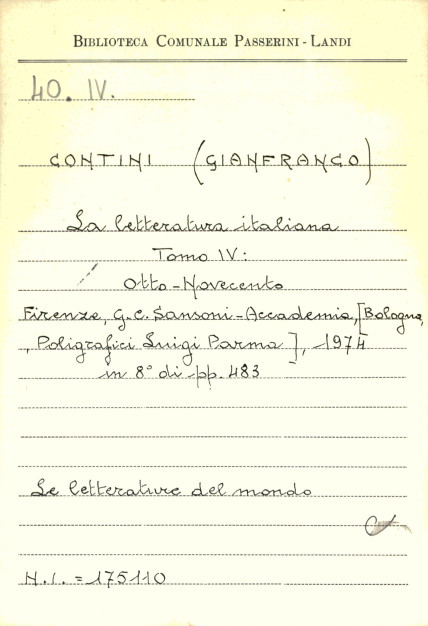 BIBLIOTECA COMUNALE PASSERINI-LANDI
40. IV.
CONTINI (GIANFRANCO)
La letteratura italiana
Tomo IV:
Otto-Novecento
Firenze, G.C. Sansoni-Accademia, [Bologna,
, Poligrafici Luigi Parma], 1974
in 8° di pp. 483
Le letterature del mondo
N.I. = 175110